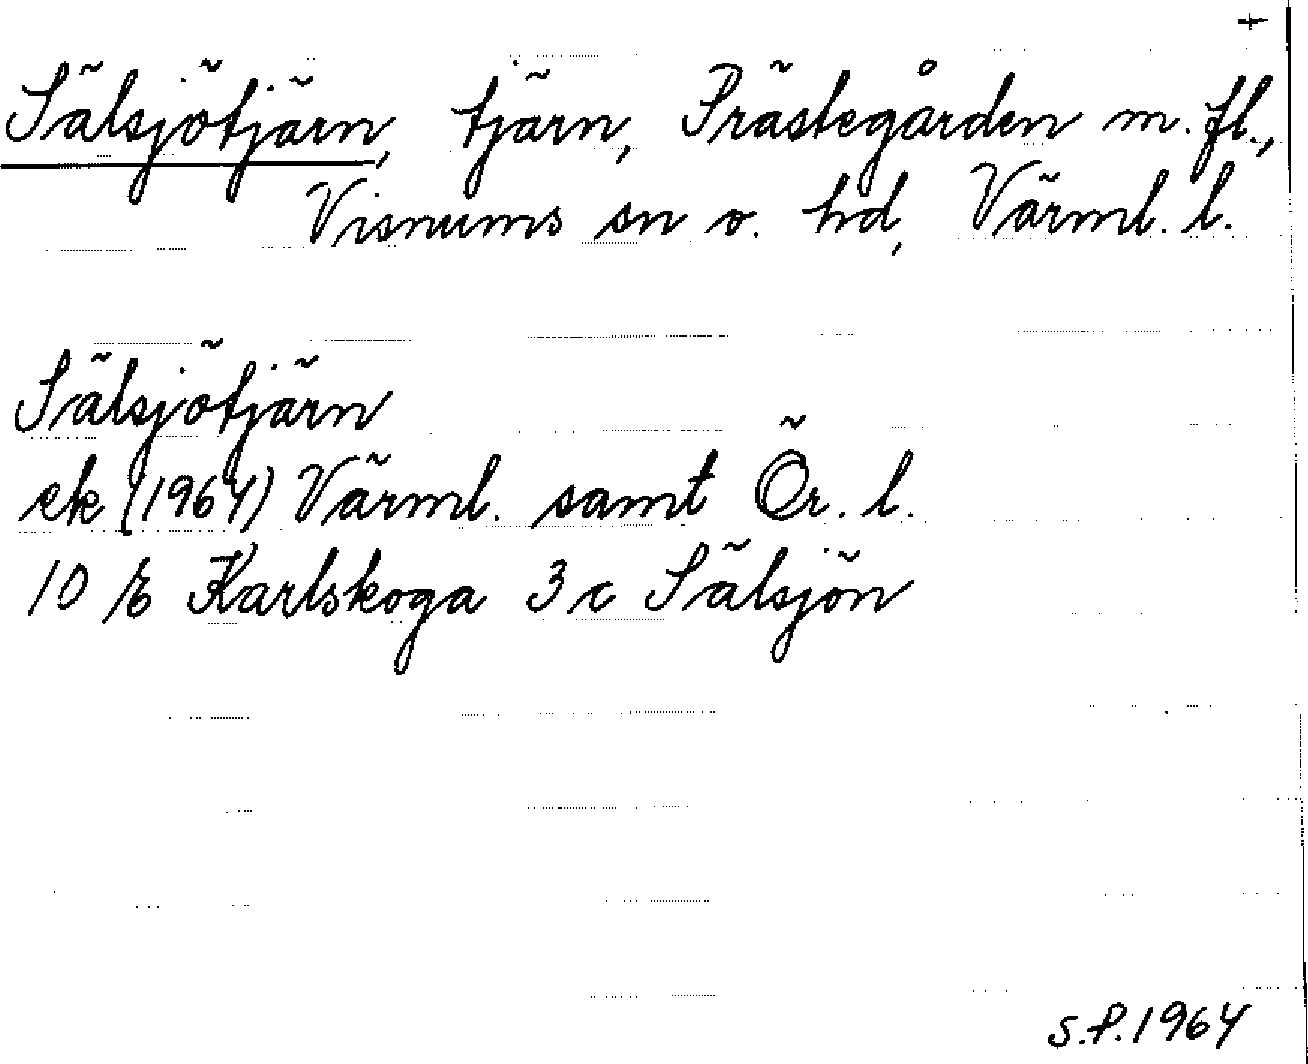 +
Sälsjötjärn, tjärn, Prästegården m. fl.,
Visnums sn o. hd, Värml. l.
Sälsjötjärn
ek (1964) Värml. samt Ör. l.
10 E Karlskoga 3 c Sälsjön
S.P. 1964